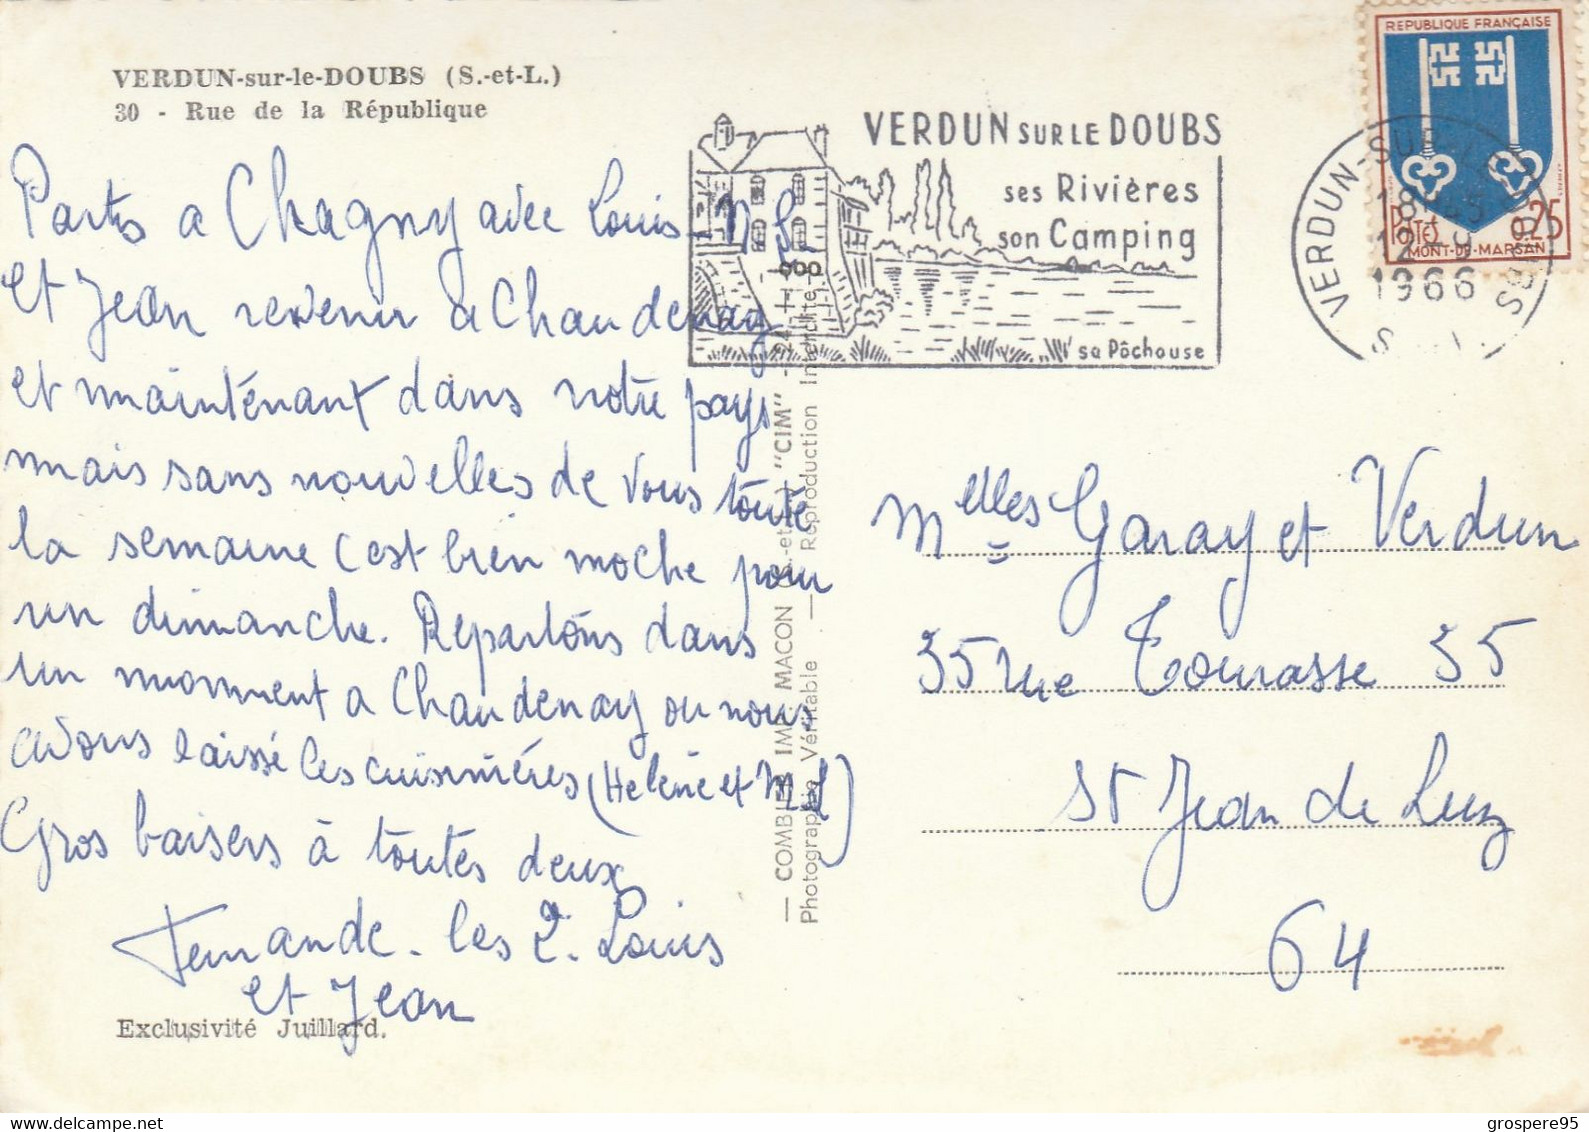 VERDUN-sur-le-DOUBS (S.-et-L.)
30 - Rue de la République
Partis a Chagny avec Louis
et Jean revenir a Chaudenay
et mainténant dans notre pays
mais sans nouvelles de vous toute
la semaine c'est bien moche pour
un dimanche. Repartons dans
un moment a Chaudenay ou nous
avons laissé les cuisinières (Helène et M L)
Gros baisers à toutes deux
Fernande. les 2. Louis
et Jean
Exclusivité Juillard.
VERDUN SUR LE DOUBS
ses Rivières
son Camping
sa Pôchouse
REPUBLIQUE FRANÇAISE
POSTES 0,25
MONT-DE-MARSAN
VERDUN-SUR-
1966
— COMBIER IMP. MACON (S.-et-L.) "CIM" —
Photographie Véritable — Reproduction Interdite
Melles Garay et Verdun
35 rue Tourasse 35
St Jean de Luz
64
grospere95